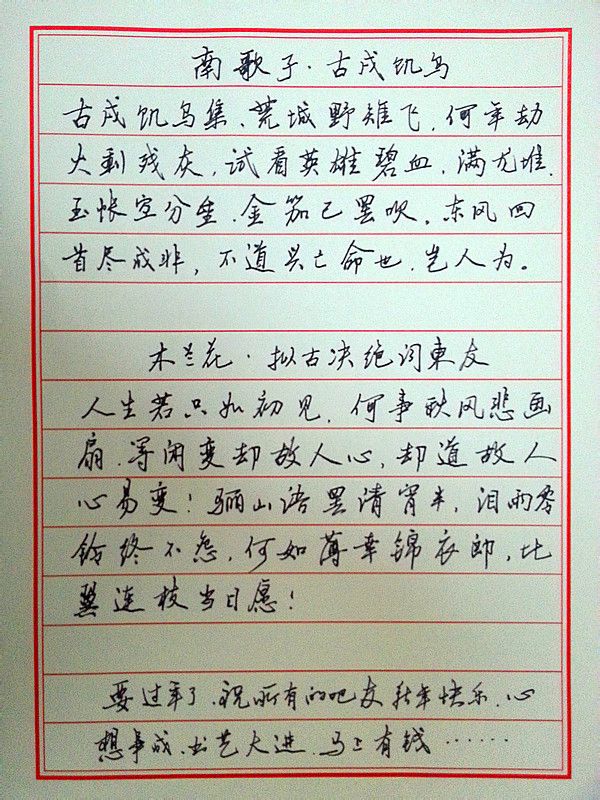 南歌子·古戍饥乌
古戍饥乌集，荒城野雉飞，何年劫
火剩残灰，试看英雄碧血，满龙堆。
玉帐空分垒，金笳已罢吹，东风回
首尽成非，不道兴亡命也，岂人为。
木兰花·拟古决绝词柬友
人生若只如初见，何事秋风悲画
扇，等闲变却故人心，却道故人
心易变！骊山语罢清宵半，泪雨零
铃终不怨，何如薄幸锦衣郎，比
翼连枝当日愿！
要过年了，祝所有的吧友新年快乐，心
想事成，书艺大进，马上有钱……